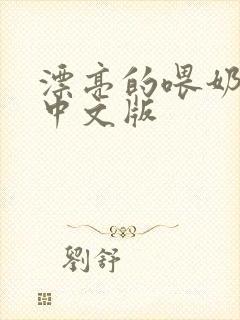 漂亮的喂奶
中文版
劉舒